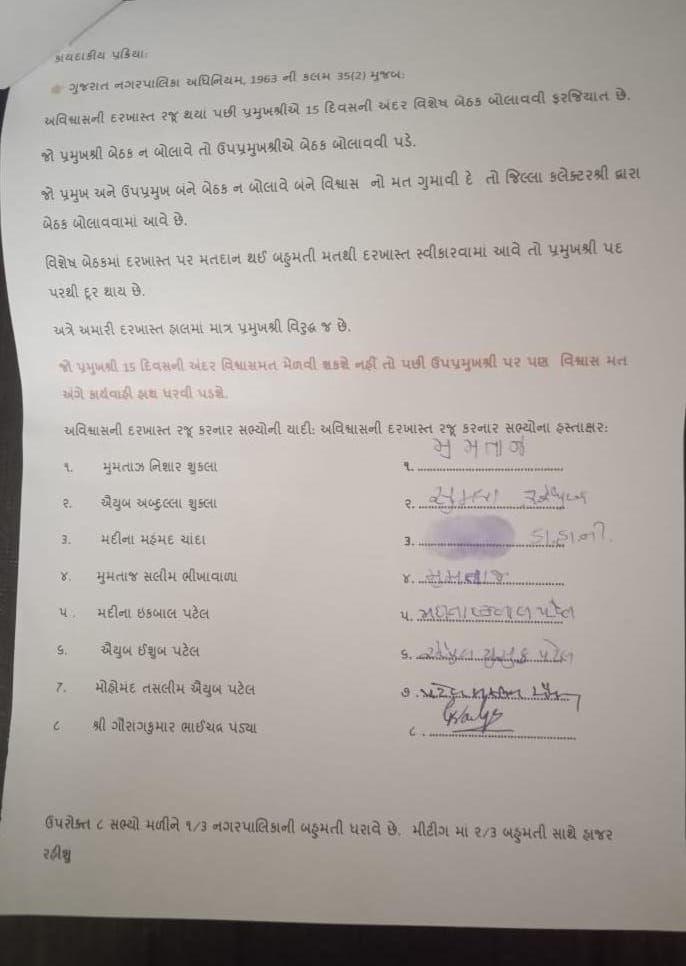 કાયદાકીય પ્રક્રિયા:
ગુજરાત નગરપાલિકા અધિનિયમ, 1963 ની કલમ 35(2) મુજબ:
અવિશ્વાસની દરખાસ્ત રજૂ થયાં પછી પ્રમુખશ્રીએ 15 દિવસની અંદર વિશેષ બેઠક બોલાવવી ફરજિયાત છે.
જો પ્રમુખશ્રી બેઠક ન બોલાવે તો ઉપપ્રમુખશ્રીએ બેઠક બોલાવવી પડે.
જો પ્રમુખ અને ઉપપ્રમુખ બંને બેઠક ન બોલાવે બંને વિશ્વાસ નો મત ગુમાવી દે તો જિલ્લા કલેક્ટરશ્રી દ્વારા
બેઠક બોલાવવામાં આવે છે.
વિશેષ બેઠકમાં દરખાસ્ત પર મતદાન થઈ બહુમતી મતથી દરખાસ્ત સ્વીકારવામાં આવે તો પ્રમુખશ્રી પદ
પરથી દૂર થાય છે.
અત્રે અમારી દરખાસ્ત હાલમાં માત્ર પ્રમુખશ્રી વિરુદ્ધ જ છે.
જો પ્રમુખશ્રી 15 દિવસની અંદર વિશ્વાસમત મેળવી શકશે નહીં તો પછી ઉપપ્રમુખશ્રી પર પણ વિશ્વાસ મત
અંગે કાર્યવાહી હાથ ધરવી પડશે.
અવિશ્વાસની દરખાસ્ત રજૂ કરનાર સભ્યોની યાદી: અવિશ્વાસની દરખાસ્ત રજૂ કરનાર સભ્યોના હસ્તાક્ષર:
૧. મુમતાઝ નિશાર શુકલા ૧. મુમતાજ
૨. ઐયુબ અબ્દુલ્લા શુક્લા ૨.
૩. મદીના મહંમદ ચાંદા ૩.
૪. મુમતાજ સલીમ ભીખાવાળા ૪. મુમતાજ
૫. મદીના ઇકબાલ પટેલ ૫. પટેલ
૬. ઐયુબ ઈશુબ પટેલ ૬. પટેલ
7. મોહોમંદ તસલીમ ઐયુબ પટેલ ૭.
૮ શ્રી ગૌરાંગકુમાર ભાઈચંદ્ર પંડ્યા ૮.
ઉપરોક્ત ૮ સભ્યો મળીને ૧/૩ નગરપાલિકાની બહુમતી ધરાવે છે. મીટીગ માં ૨/૩ બહુમતી સાથે હાજર
રહીશુ